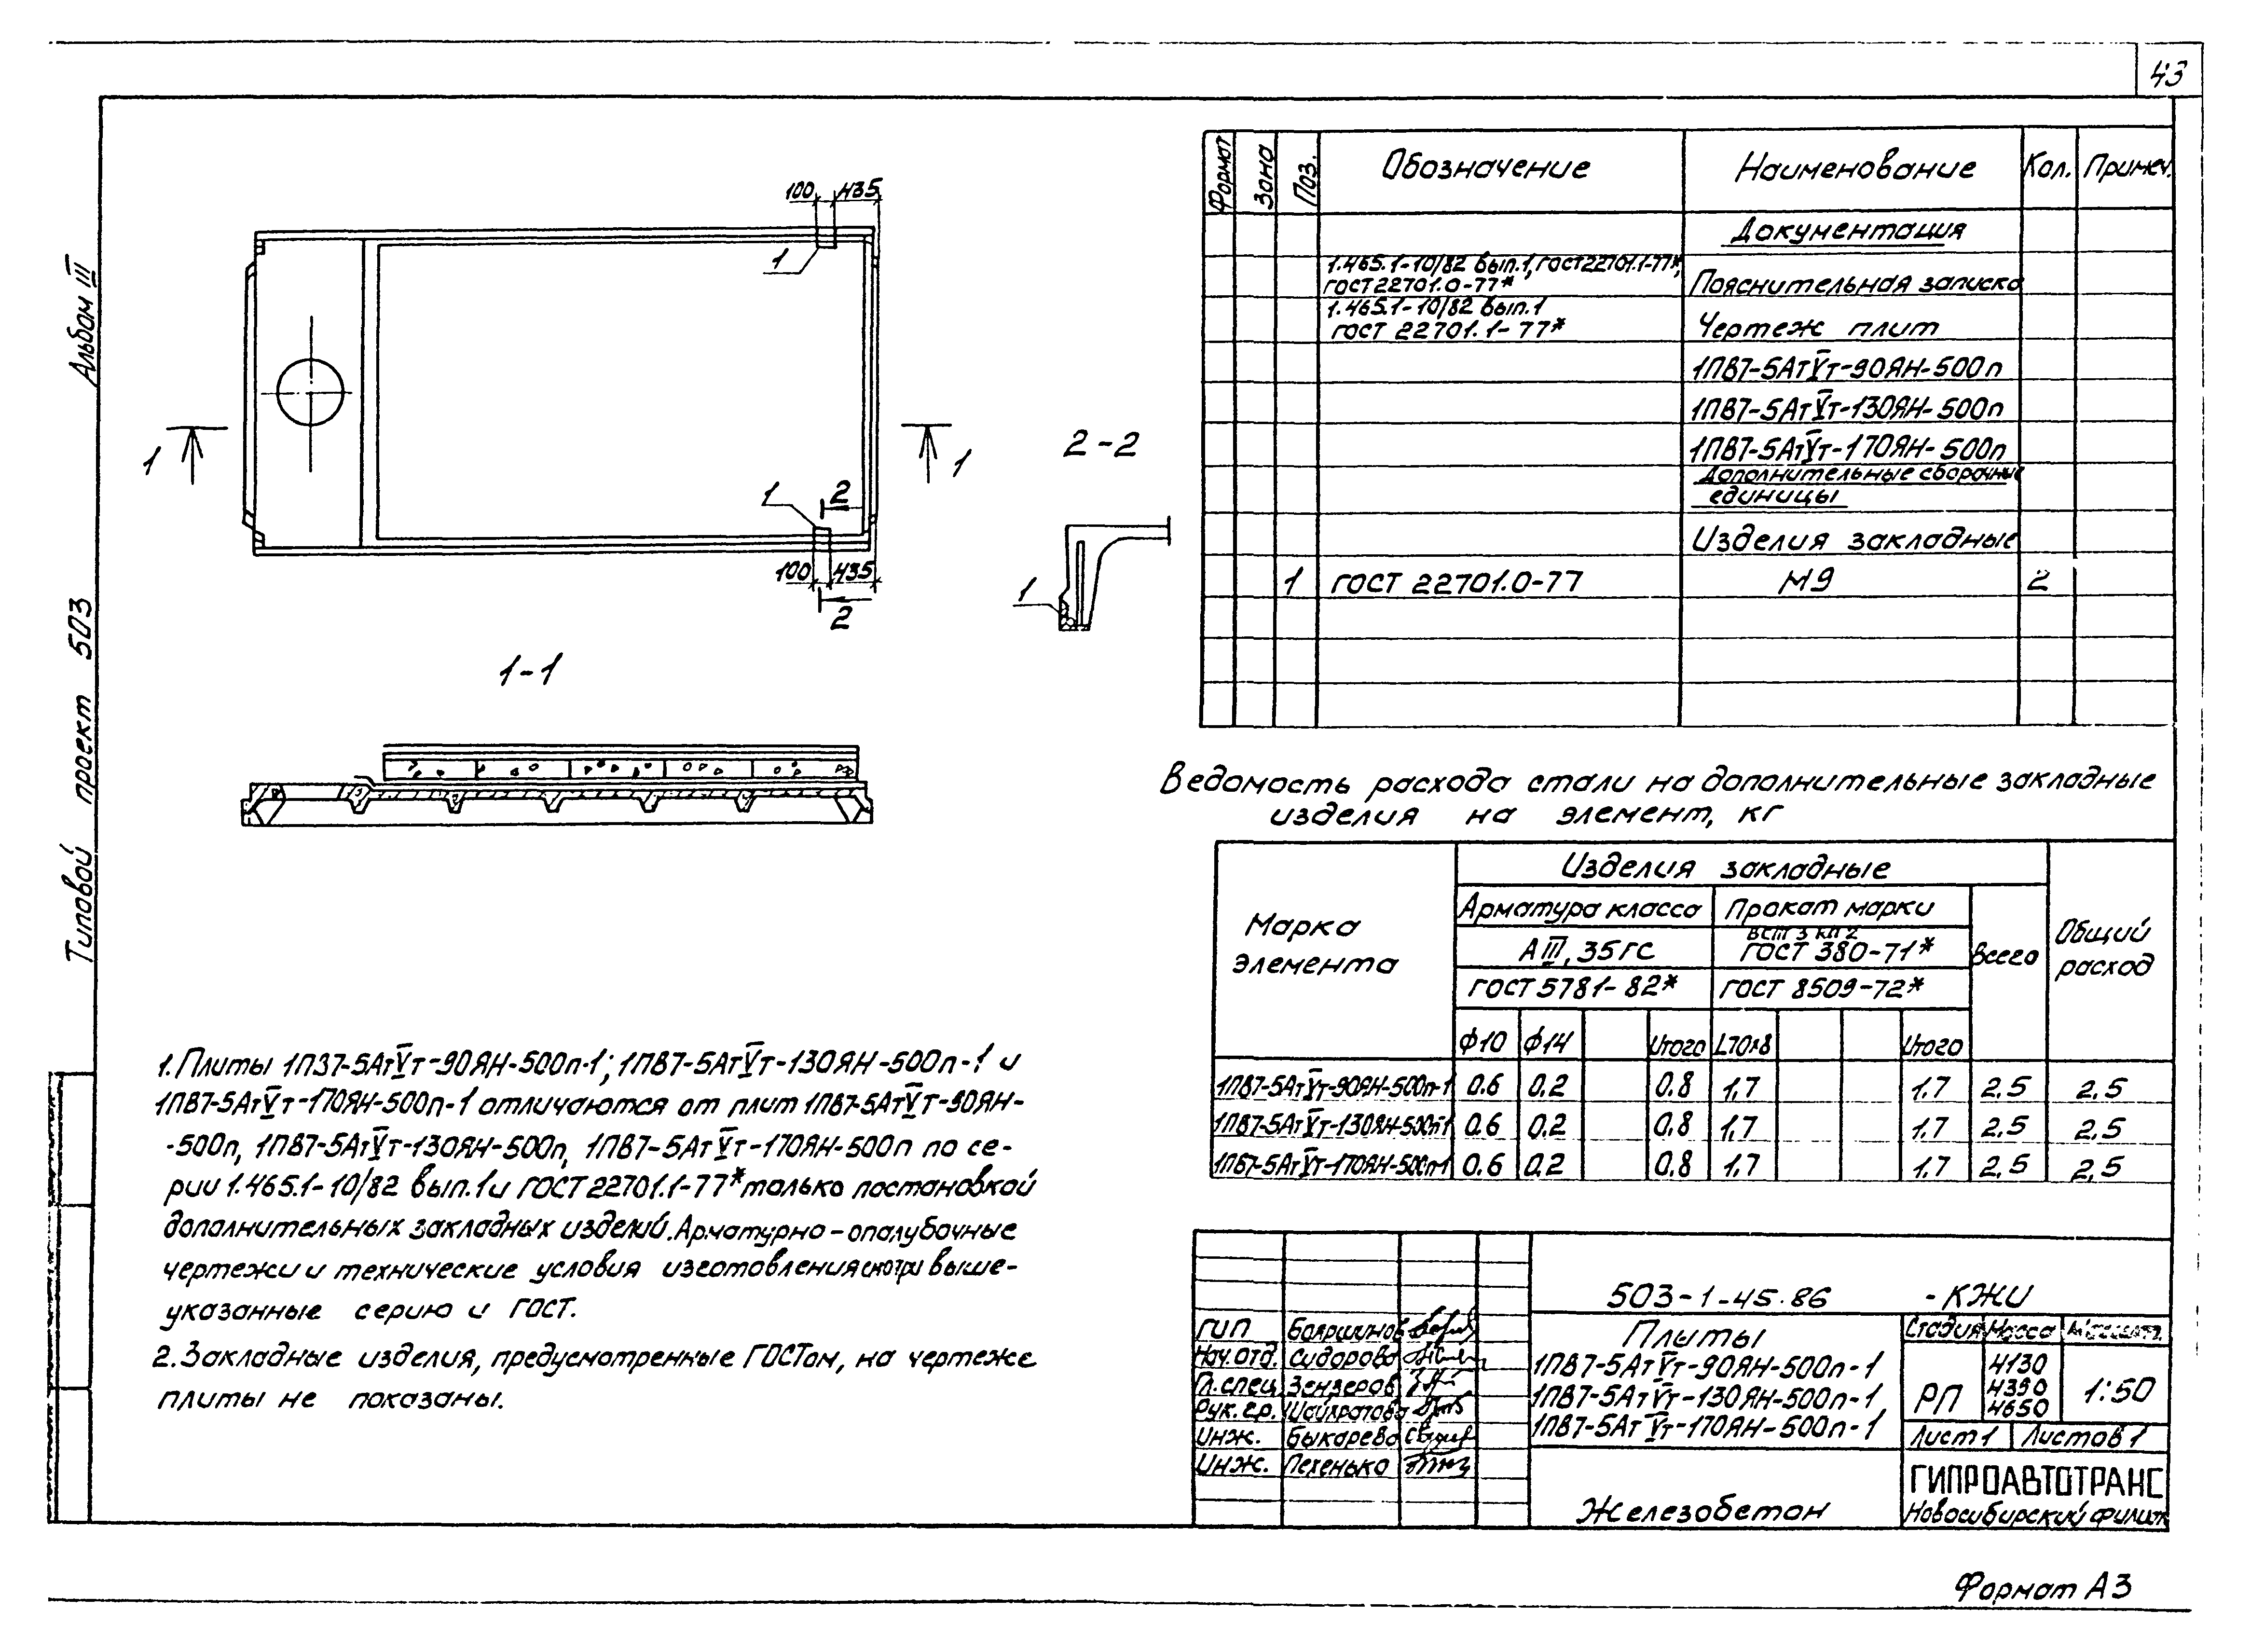 43
Альбом III
Типовой проект 503
100
435
1
1
1
1
2
100
435
2
2-2
1
1-1
Формат
Зона
Поз.
Обозначение
Наименование
Кол.
Примеч.
Документация
1.465.1-10/82 вып.1, ГОСТ 22701.1-77*,
ГОСТ 22701.0-77*
Пояснительная записка
1.465.1-10/82 вып.1
ГОСТ 22701.1-77*
Чертеж плит
1ПВ7-5АтVт-90ЯН-500п
1ПВ7-5АтVт-130ЯН-500п
1ПВ7-5АтVт-170ЯН-500п
Дополнительные сборочные
единицы
Изделия закладные
1 ГОСТ 22701.0-77 М9 2
Ведомость расхода стали на дополнительные закладные
изделия на элемент, кг
Марка
элемента
Изделия закладные
Общий
расход
Арматура класса
Прокат марки
Всего
АIII, 35ГС
ВСт 3 кп 2
ГОСТ 380-71*
ГОСТ 5781-82*
ГОСТ 8509-72*
ф10 ф14 Итого L70х8 Итого
1ПВ7-5АтVт-90ЯН-500п-1 0.6 0.2 0.8 1,7 1.7 2,5 2,5
1ПВ7-5АтVт-130ЯН-500п-1 0.6 0.2 0.8 1,7 1.7 2,5 2,5
1ПВ7-5АтVт-170ЯН-500п-1 0.6 0.2 0.8 1.7 1.7 2,5 2,5
1. Плиты 1ПЗ7-5АтVт-90ЯН-500п-1; 1ПВ7-5АтVт-130ЯН-500п-1 и
1ПВ7-5АтVт-170ЯН-500п-1 отличаются от плит 1ПВ7-5АтVт-90ЯН-
-500п, 1ПВ7-5АтVт-130ЯН-500п, 1ПВ7-5АтVт-170ЯН-500п по се-
рии 1.465.1-10/82 вып.1 и ГОСТ 22701.1-77* только постановкой
дополнительных закладных изделий. Арматурно-опалубочные
чертежи и технические условия изготовления смотри выше-
указанные серию и ГОСТ.
2. Закладные изделия, предусмотренные ГОСТом, на чертеже
плиты не показаны.
503-1-45.86 -КЖИ
ГИП Бояршинов
Нач.отд. Сидорова
Гл.спец. Зензеров
Рук.гр.
Инж. Быкарева
Инж. Пехенько
Плиты
1ПВ7-5АтVт-90ЯН-500п-1
1ПВ7-5АтVт-130ЯН-500п-1,
1ПВ7-5АтVт-170ЯН-500п-1
Стадия Масса Масшт.
РП
4130
4390
4650
1:50
Лист 1 Листов 1
Железобетон
ГИПРОАВТОТРАНС
Новосибирский филиал
Формат А3